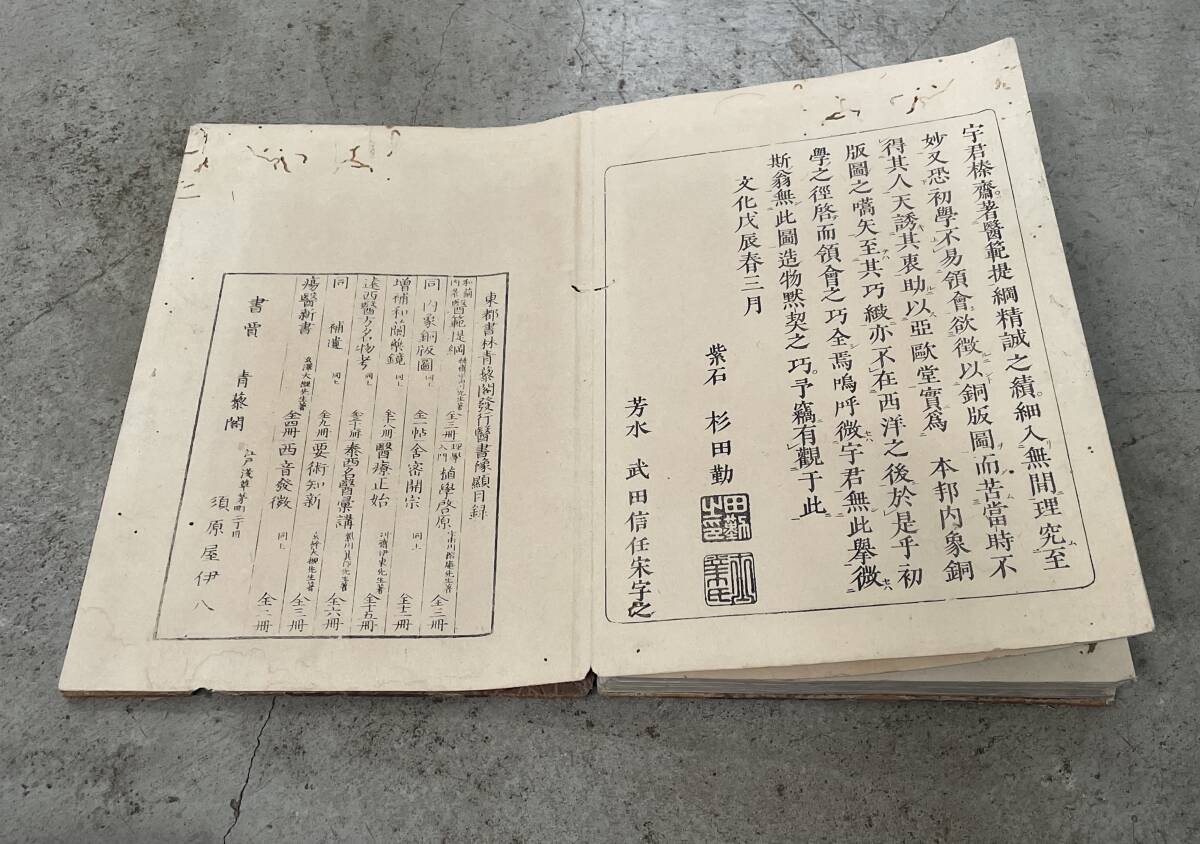 宇君榛齋著醫範提綱精誠之績細入無間理究至
妙又恐初學不易領會欲徵以銅版圖而苦當時不
得其人天誘其衷助以亞歐堂實為 本邦内象銅
版圖之嚆矢至其巧緻亦不在西洋之後於是乎初
學之徑啓而領會之巧全焉嗚呼微宇君無此擧微
斯翁無此圖造物黙契之巧予竊有觀于此
文化戊辰春三月
紫石 杉田勤
芳水 武田信任宋字之
東都書林青藜閣發行醫書像顯目録
和蘭内景醫範提綱 全三冊 理學入門植學啓原 全三冊
同 内象銅版圖 同上 全一帖 舎密開宗 同上
増補和蘭藥鏡 同上 全十八冊 醫療正始 全十五冊
遠西醫方名物考 同上 泰西名醫彙講 全六冊
同 補遺 同上 全九冊 要術知新 全三冊
瘍醫新書 全四冊 西音發微 同上 全二冊
書賈 青藜閣 江戸淺草茅町二丁目 須原屋伊八